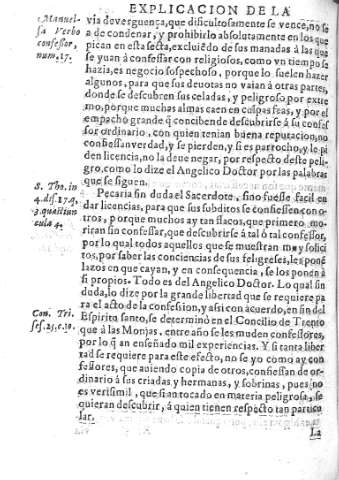 EXPLICACION DE LA
1. Manuel.
sa Verbo
confessor,
num. 17.
via de verguença, que dificultosamente se vence, no se
a de condenar, y prohibirlo absolutamente en los que
pican en esta secta, excluiēdo de sus manadas à las que
se yuan à confessar con religiosos, como vn tiempo se
hazia, es negocio sospechoso, porque lo suelen hazer
algunos, para que sus deuotas no vaian à otras partes,
donde se descubren sus celadas, y peligroso por extre
mo, porque muchas almas caen en culpas feas, y por el
empacho grande q̄ conciben de descubrirse à su confes
sor ordinario, con quien tenian buena reputacion, no
confiessan verdad, y se pierden, y si es parrocho, y le pi
den licencia, no la deue negar, por respecto deste peli-
gro, como lo dize el Angelico Doctor por las palabras
que se siguen.
S. Tho. in
4. dis. 17. q.
3. quæstiun
cula 4.
Pecaria sin duda el Sacerdote, sino fuesse facil en
dar licencias, para que sus subditos se confiessen con o-
tros, porque muchos ay tan flacos, que primero mo-
riran sin confessar, que descubrirse à tal ò tal confessor,
por lo qual todos aquellos que se muestran muy solici
tos, por saber las conciencias de sus feligreses, les ponē
lazos en que cayan, y en consequencia, se los ponen à
si propios. Todo es del Angelico Doctor. Lo qual sin
duda, lo dize por la grande libertad que se requiere pa
ra el acto de la confession, y assi con acuerdo, en sin del
Con. Tri.
ses. 25. c. 10.
Espiritu santo, se determinò en el Concilio de Trento
que à las Monjas, entre año se les muden confessores,
por lo q̄ an enseñado mil experiencias. Y si tanta liber
tad se requiere para este efecto, no se yo como ay con
fessores, que auiendo copia de otros, confiessan de or-
dinario à sus criadas y hermanas, y sobrinas, pues no
es verisimil, que si an tocado en materia peligrosa, se
quieran descubrir, à quien tienen respecto tan particu
lar.
La